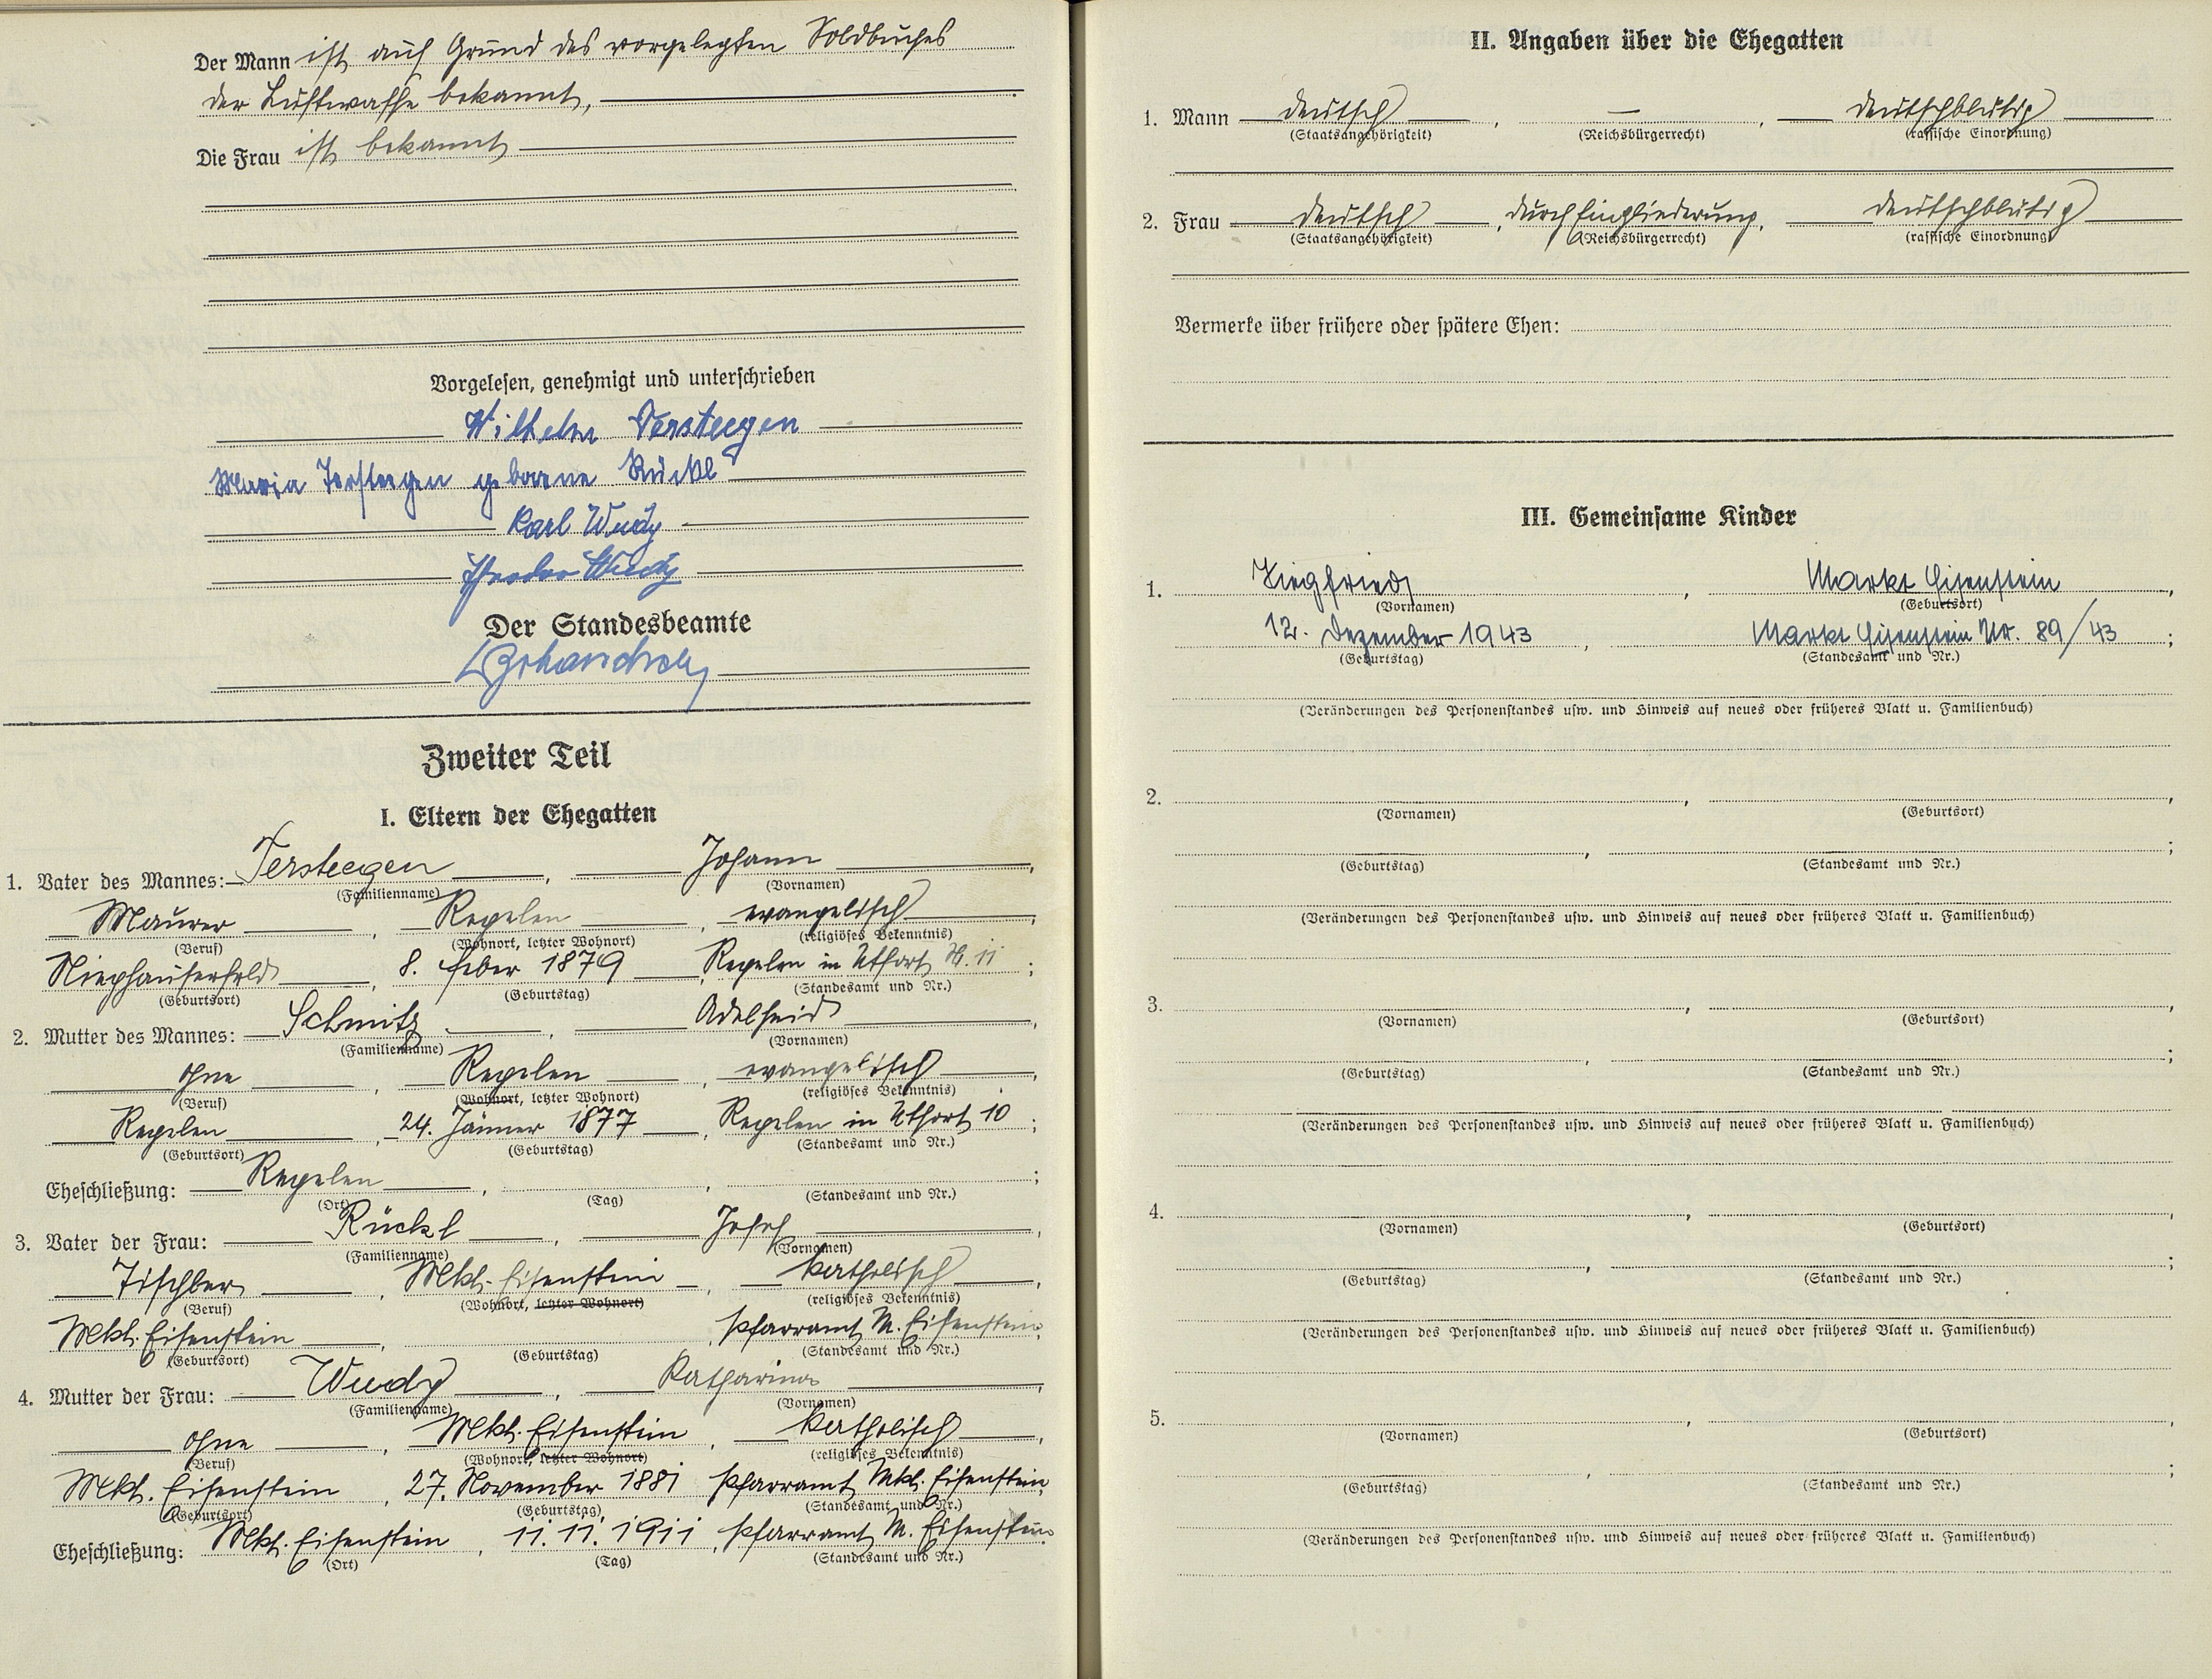 Der Mann ist auf Grund des vorgelegten Soldbuches
der Luftwaffe bekannt,
Die Frau ist bekannt
Vorgelesen, genehmigt und unterschrieben
Wilhelm Tersteegen
Maria Tersteegen geborene Rückl
Karl Wudy
Wudy
Der Standesbeamte
Zweiter Teil
I. Eltern der Ehegatten
1. Vater des Mannes: Tersteegen, Johann,
(Familienname) (Vornamen)
Maurer, Repelen, evangelisch,
(Beruf) (Wohnort, letzter Wohnort) (religiöses Bekenntnis)
Niephauserfeld, 8. feber 1879, Repelen in Utfort N. 11;
(Geburtsort) (Geburtstag) (Standesamt und Nr.)
2. Mutter des Mannes: Schmitz, Adelheid,
(Familienname) (Vornamen)
ohne, Repelen, evangelisch,
(Beruf) (Wohnort, letzter Wohnort) (religiöses Bekenntnis)
Repelen, 24. Jänner 1877, Repelen in Utfort 10;
(Geburtsort) (Geburtstag) (Standesamt und Nr.)
Eheschließung: Repelen, , ;
(Ort) (Tag) (Standesamt und Nr.)
3. Vater der Frau: Rückl, Josef,
(Familienname) (Vornamen)
Tischler, Mkt. Eisenstein, katholisch,
(Beruf) (Wohnort, letzter Wohnort) (religiöses Bekenntnis)
Mkt. Eisenstein, , Pfarramt M. Eisenstein;
(Geburtsort) (Geburtstag) (Standesamt und Nr.)
4. Mutter der Frau: Wudy, Katharina,
(Familienname) (Vornamen)
ohne, Mkt. Eisenstein, katholisch,
(Beruf) (Wohnort, letzter Wohnort) (religiöses Bekenntnis)
Mkt. Eisenstein, 27. November 1881 Pfarramt Mkt. Eisenstein;
(Geburtsort) (Geburtstag) (Standesamt und Nr.)
Eheschließung: Mkt. Eisenstein, 11. 11. 1911, Pfarramt M. Eisenstein
(Ort) (Tag) (Standesamt und Nr.)
II. Angaben über die Ehegatten
1. Mann deutsch, —, deutschblütig
(Staatsangehörigkeit) (Reichsbürgerrecht) (rassische Einordnung)
2. Frau deutsch, durch Eingliederung, deutschblütig
(Staatsangehörigkeit) (Reichsbürgerrecht) (rassische Einordnung)
Vermerke über frühere oder spätere Ehen:
III. Gemeinsame Kinder
1. Siegfried, Markt Eisenstein,
(Vornamen) (Geburtsort)
12. Dezember 1943, Markt Eisenstein Nr. 89/43;
(Geburtstag) (Standesamt und Nr.)
(Veränderungen des Personenstandes usw. und Hinweis auf neues oder früheres Blatt u. Familienbuch)
2. , ,
(Vornamen) (Geburtsort)
, ;
(Geburtstag) (Standesamt und Nr.)
(Veränderungen des Personenstandes usw. und Hinweis auf neues oder früheres Blatt u. Familienbuch)
3. , ,
(Vornamen) (Geburtsort)
, ;
(Geburtstag) (Standesamt und Nr.)
(Veränderungen des Personenstandes usw. und Hinweis auf neues oder früheres Blatt u. Familienbuch)
4. , ,
(Vornamen) (Geburtsort)
, ;
(Geburtstag) (Standesamt und Nr.)
(Veränderungen des Personenstandes usw. und Hinweis auf neues oder früheres Blatt u. Familienbuch)
5. , ,
(Vornamen) (Geburtsort)
, ;
(Geburtstag) (Standesamt und Nr.)
(Veränderungen des Personenstandes usw. und Hinweis auf neues oder früheres Blatt u. Familienbuch)